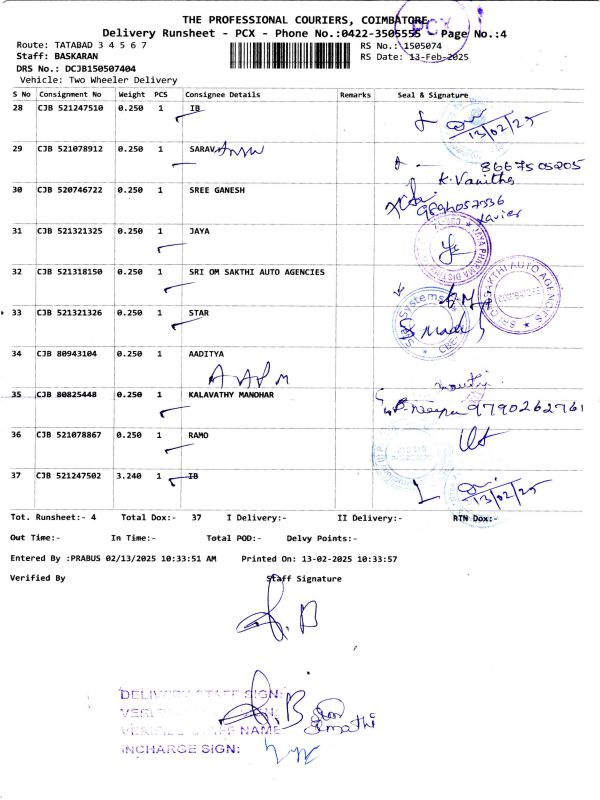 THE PROFESSIONAL COURIERS, COIMBATORE
PCX
Delivery Runsheet - PCX - Phone No.:0422-3505555 Page No.:4
Route: TATABAD 3 4 5 6 7 RS No.: 1505074
Staff: BASKARAN RS Date: 13-Feb-2025
DRS No.: DCJB150507404
Vehicle: Two Wheeler Delivery
S No Consignment No Weight PCS Consignee Details Remarks Seal & Signature
28 CJB 521247510 0.250 1 IB
13/02/25
29 CJB 521078912 0.250 1 SARAV
8667505205
K. Vanitha
30 CJB 520746722 0.250 1 SREE GANESH
Xavier
31 CJB 521321325 0.250 1 JAYA
JAYA PHARMA DISTRI
32 CJB 521318150 0.250 1 SRI OM SAKTHI AUTO AGENCIES
SRI OM SAKTHI AUTO AGENCIES
33 CJB 521321326 0.250 1 STAR
Star Systems
CBE
34 CJB 80943104 0.250 1 AADITYA
35 CJB 80825448 0.250 1 KALAVATHY MANOHAR
9790262761
36 CJB 521078867 0.250 1 RAMO
37 CJB 521247502 3.240 1 IB
13/02/25
Tot. Runsheet:- 4 Total Dox:- 37 I Delivery:- II Delivery:- RTN Dox:-
Out Time:- In Time:- Total POD:- Delvy Points:-
Entered By :PRABUS 02/13/2025 10:33:51 AM Printed On: 13-02-2025 10:33:57
Verified By Staff Signature
DELIVERY STAFF SIGN:
VERIFIED STAFF NAME
INCHARGE SIGN: